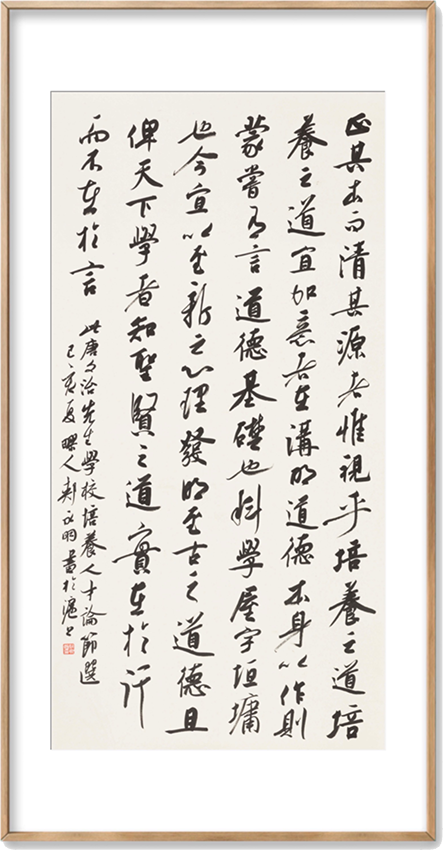 正其本而清其源者惟視乎培養之道培
養之道宜加意者在講明道德本身以作則
蒙嘗有言道德基礎也科學屋宇垣墉
也今宜以至新之心理發明至古之道德且
俾天下學者知聖賢之道實在於行
而不在於言
此唐文治先生學校培養人才論節選
己亥夏人永明書於滬上